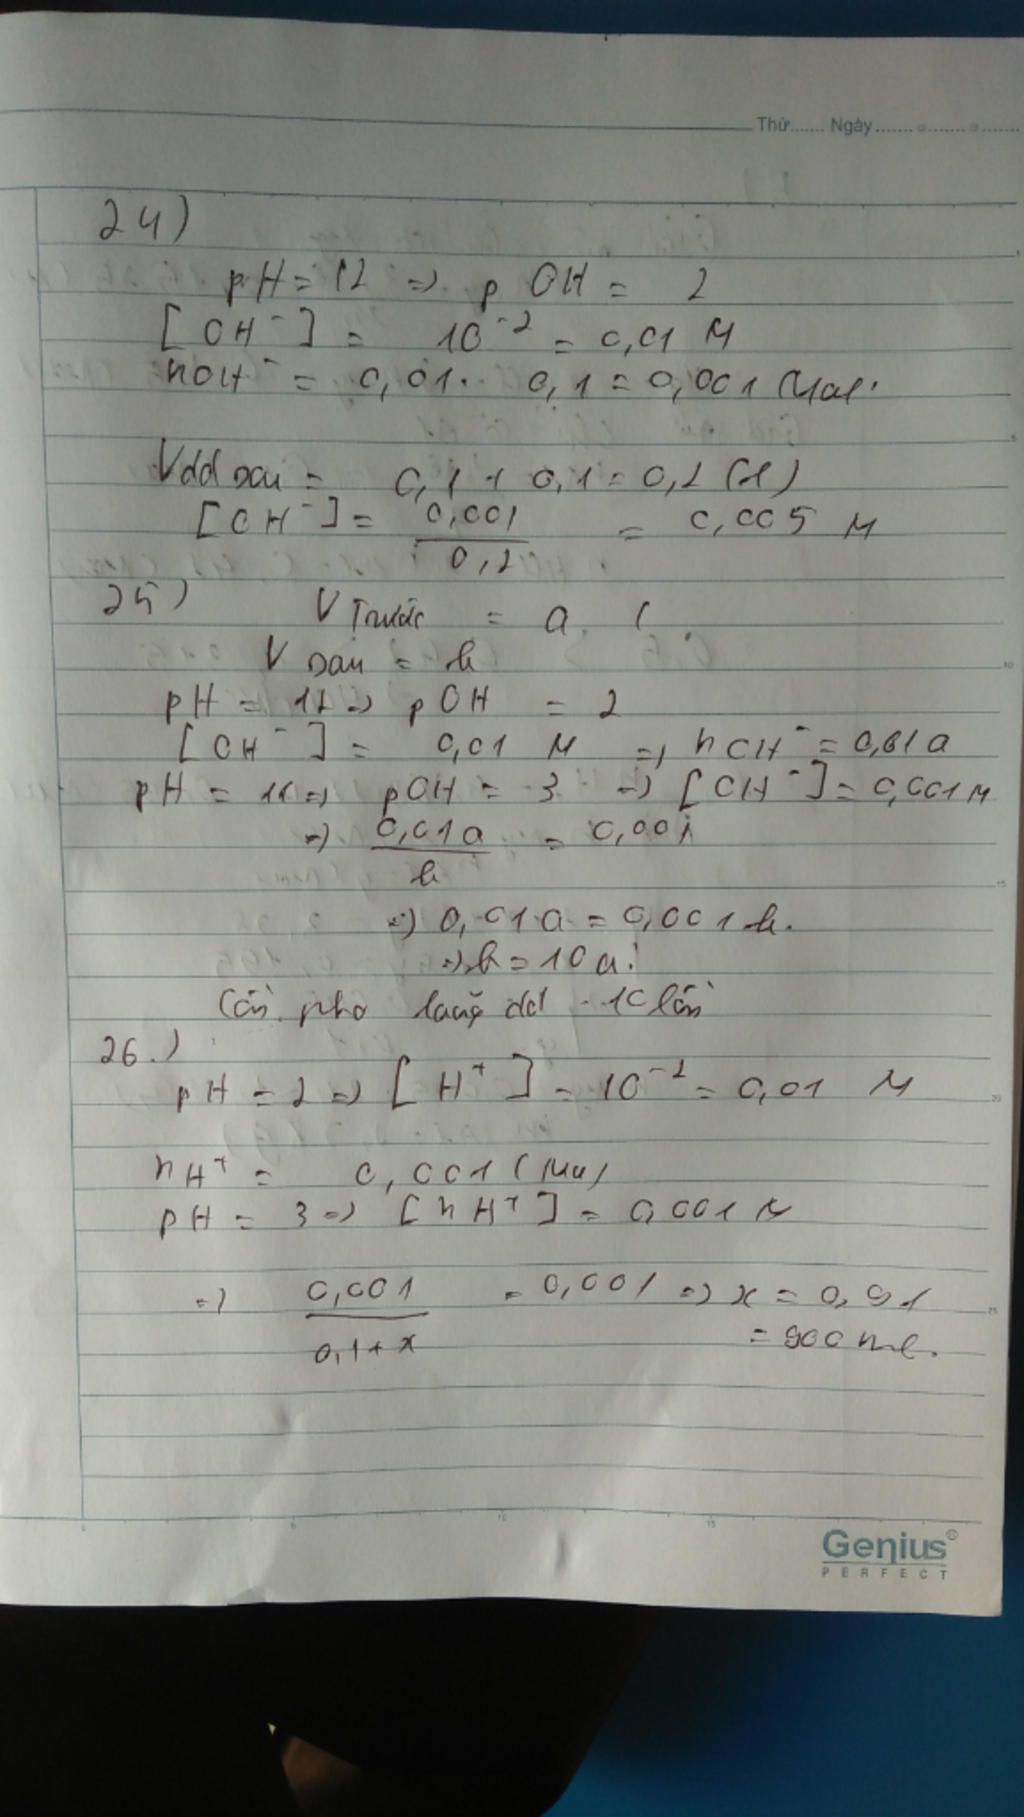 Thứ....... Ngày........................
24)
pH = 12 => pOH = 2
[OH⁻] = 10⁻² = 0,01 M
nOH⁻ = 0,01. 0,1 = 0,001 (mol.
Vdd sau = 0,1 + 0,1 = 0,2 (l)
[OH⁻] = 0,001 / 0,2 = 0,005 M
25) V Trước = a. l
V sau = b
pH = 12 => pOH = 2
[OH⁻] = 0,01 M => nOH⁻ = 0,01a
pH = 11 => pOH = 3 => [OH⁻] = 0,001 M
=> 0,01a / b = 0,001
=> 0,01a = 0,001b.
=> b = 10a.
Cần pha loãng dd 10 lần
26.)
pH = 2 => [H⁺] = 10⁻² = 0,01 M
nH⁺ = 0,001 (mol)
pH = 3 => [nH⁺] = 0,001 M
=> 0,001 / 0,1+x = 0,001 => x = 0,9l
= 900 ml.
Genius
PERFECT